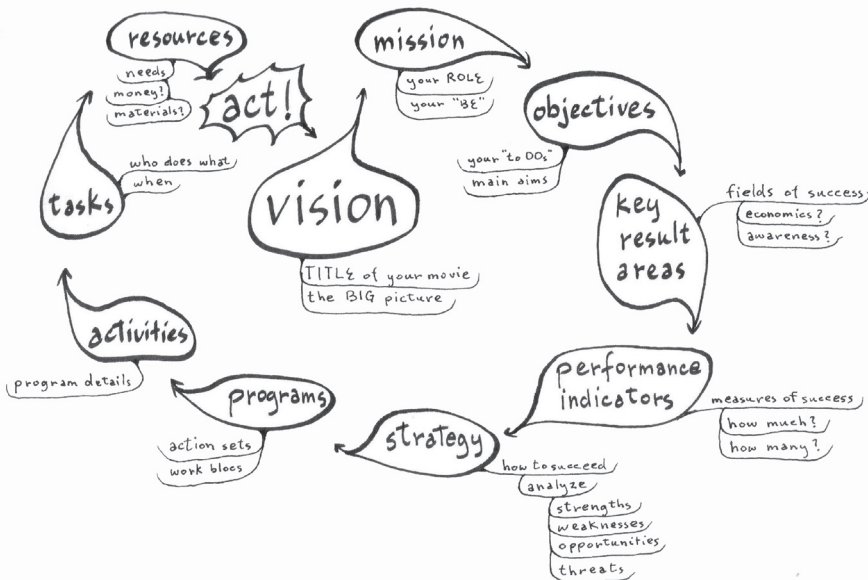 vision
TITLE of your movie
the BIG picture
mission
your ROLE
your "BE"
objectives
your "to DOs"
main aims
key
result
areas
fields of success
economics?
awareness?
performance
indicators
measures of success
how much?
how many?
strategy
how to succeed
analyze
strengths
weaknesses
opportunities
threats
programs
action sets
work blocs
activities
program details
tasks
who does what
when
resources
needs
money?
materials?
act!